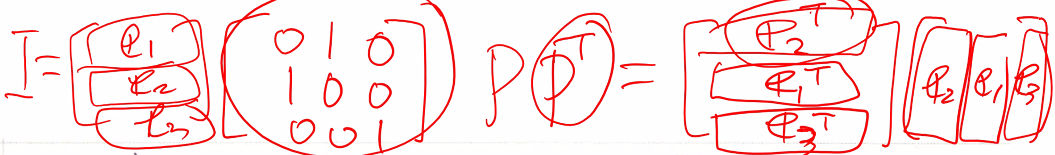 I = [e₁ e₂ e₃] [0 1 0 1 0 0 0 0 1] P Pᵀ = [e₂ᵀ e₁ᵀ e₃ᵀ] [e₂ e₁ e₃]